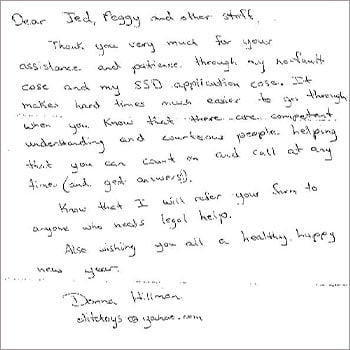 Dear Jed, Peggy and other staff,
Thank you very much for your
assistance and patience through my nofault
case and my SSD application case. It
makes hard times much easier to go through
when you know that there are competent
understanding and courteous people helping
that you can count on and call at any
time (and get answers!).
Know that I will refer your firm to
anyone who needs legal help.
Also wishing you all a healthy, happy
new year.
Donna Hillman
@yahoo.com